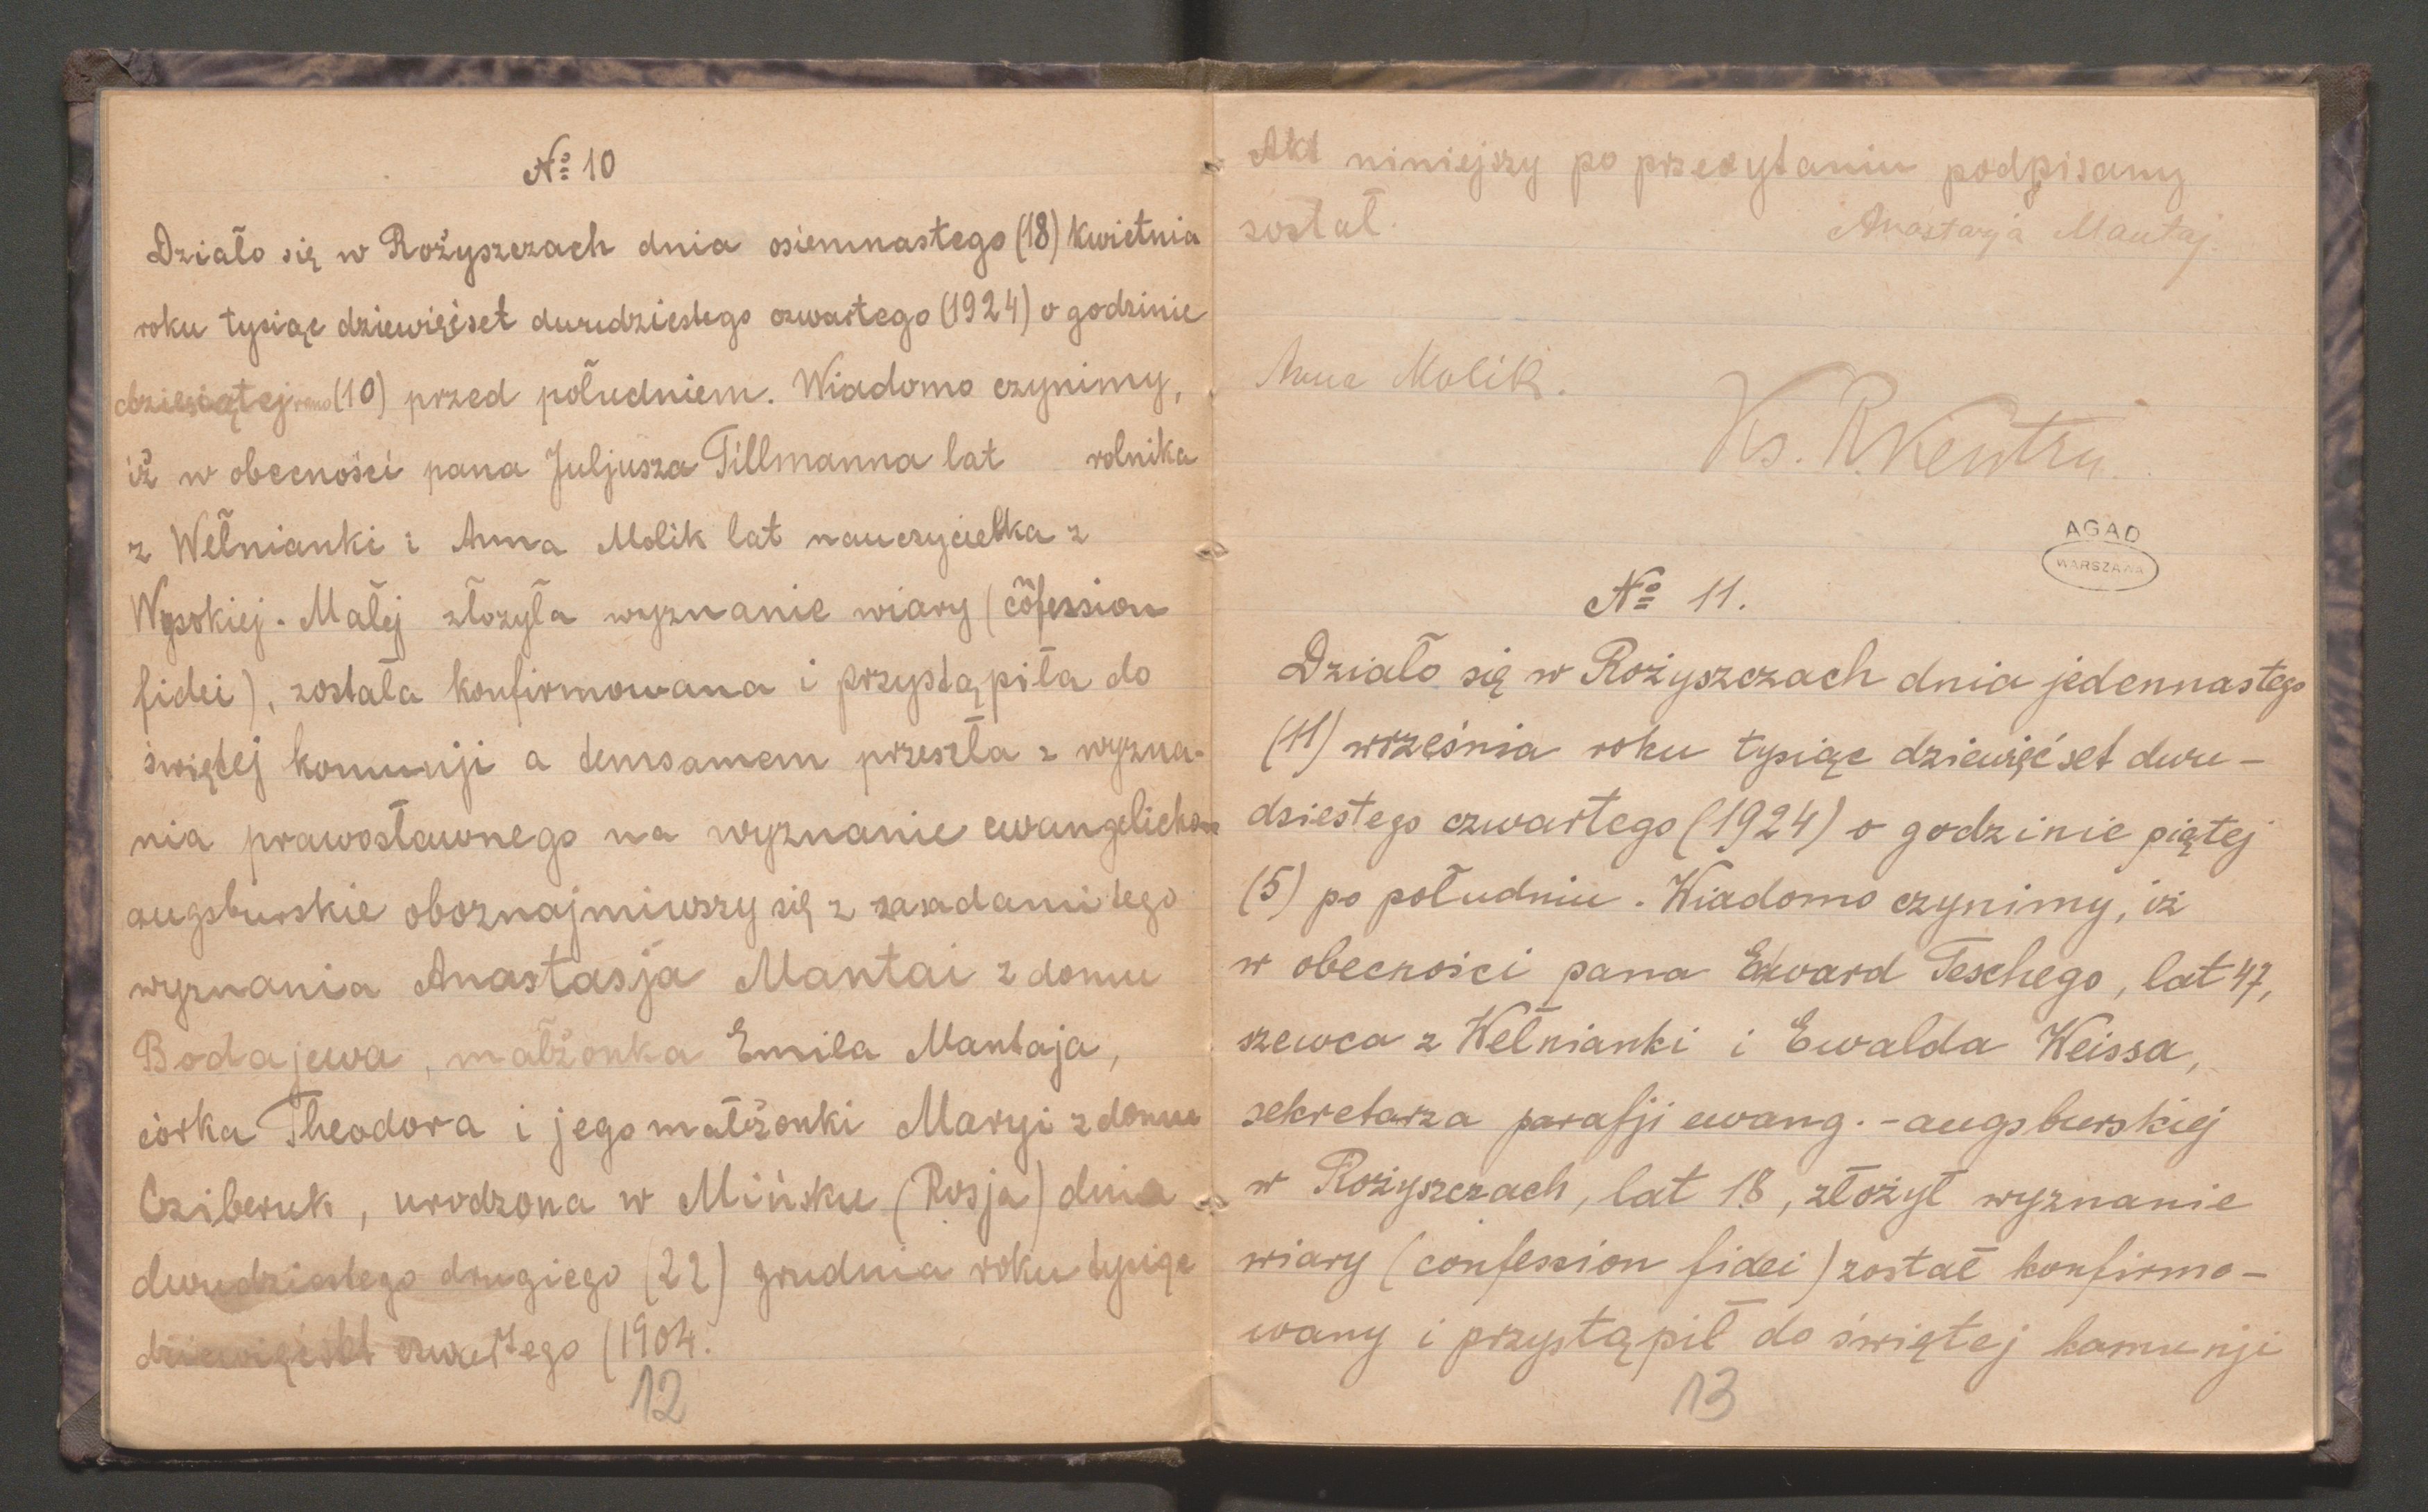 № 10
Działo się w Rożyszczach dnia osiemnastego (18) kwietnia
roku tysiąc dziewięćset dwudziestego czwartego (1924) o godzinie
dziesiątej rano (10) przed południem. Wiadomo czynimy,
iż w obecności pana Juljusza Tillmanna lat rolnika
z Wełnianki i Anna Molik lat nauczycielka z
Wysokiej-Małej złożyła wyznanie wiary (cõfession
fidei), została konfirmowana i przystąpiła do
świętej komunji a temsamem przeszła z wyzna-
nia prawosławnego na wyznanie ewangelicko
augsburskie oboznajmiwszy się z zasadami tego
wyznania Anastasja Mantai z domu
Bodajewa, małżonka Emila Mantaja,
córka Theodora i jego małżonki Maryi z domu
Cziberuk, urodzona w Mińsku (Rosja) dnia
dwudziestego drugiego (22) grudnia roku tysiąc
dziewięćset czwartego (1904.
12
Akt niniejszy po przeczytaniu podpisany
został.
Anastazja Mantaj.
Anna Molik.
Ks. R. Kentzu
AGAD
WARSZAWA
№ 11.
Działo się w Rożyszczach dnia jedennastego
(11) września roku tysiąc dziewięćset dwu-
dziestego czwartego (1924) o godzinie piątej
(5) po południu. Wiadomo czynimy, iż
w obecności pana Edward Teschego, lat 47,
szewca z Wełnianki i Ewalda Weissa,
sekretarza parafji ewang.-augsburskiej
w Rożyszczach, lat 18, złożył wyznanie
wiary (confession fidei) został konfirmo-
wany i przystąpił do świętej komunji
13